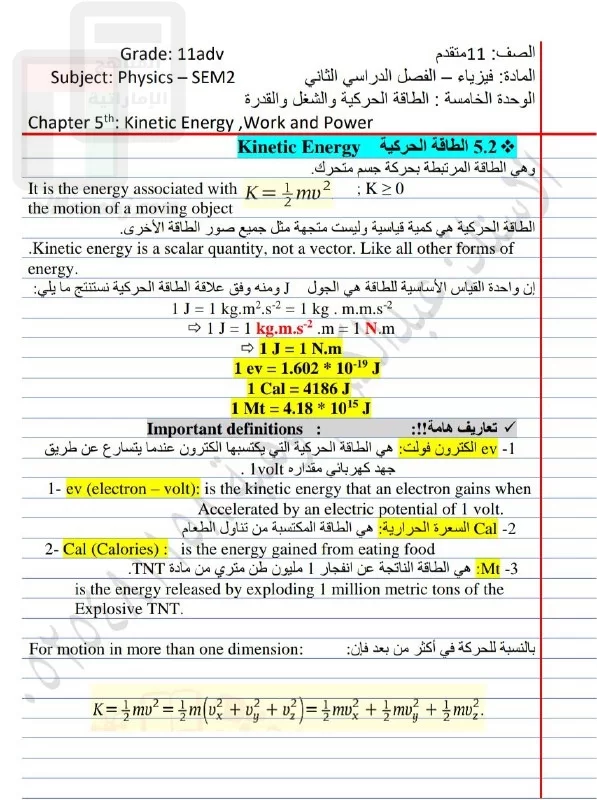 المناهج
الإماراتية
Grade: 11adv الصف: 11متقدم
Subject: Physics – SEM2 المادة: فيزياء – الفصل الدراسي الثاني
الوحدة الخامسة : الطاقة الحركية والشغل والقدرة
Chapter 5th: Kinetic Energy ,Work and Power
❖ 5.2 الطاقة الحركية Kinetic Energy
وهي الطاقة المرتبطة بحركة جسم متحرك.
It is the energy associated with K = ½ mv² ; K ≥ 0
the motion of a moving object
الطاقة الحركية هي كمية قياسية وليست متجهة مثل جميع صور الطاقة الأخرى.
.Kinetic energy is a scalar quantity, not a vector. Like all other forms of
energy.
إن واحدة القياس الأساسية للطاقة هي الجول J ومنه وفق علاقة الطاقة الحركية نستنتج ما يلي:
1 J = 1 kg.m².s⁻² = 1 kg . m.m.s⁻²
⇨ 1 J = 1 kg.m.s⁻² .m = 1 N.m
⇨ 1 J = 1 N.m
1 ev = 1.602 * 10⁻¹⁹ J
1 Cal = 4186 J
1 Mt = 4.18 * 10¹⁵ J
✓ تعاريف هامة!!: Important definitions :
1- ev الكترون فولت: هي الطاقة الحركية التي يكتسبها الكترون عندما يتسارع عن طريق
جهد كهربائي مقداره 1volt .
1- ev (electron – volt): is the kinetic energy that an electron gains when
Accelerated by an electric potential of 1 volt.
2- Cal السعرة الحرارية: هي الطاقة المكتسبة من تناول الطعام
2- Cal (Calories) : is the energy gained from eating food
3- Mt: هي الطاقة الناتجة عن انفجار 1 مليون طن متري من مادة TNT.
is the energy released by exploding 1 million metric tons of the
Explosive TNT.
For motion in more than one dimension: بالنسبة للحركة في أكثر من بعد فإن:
K = ½ mv² = ½ m(v_x² + v_y² + v_z²) = ½ mv_x² + ½ mv_y² + ½ mv_z².